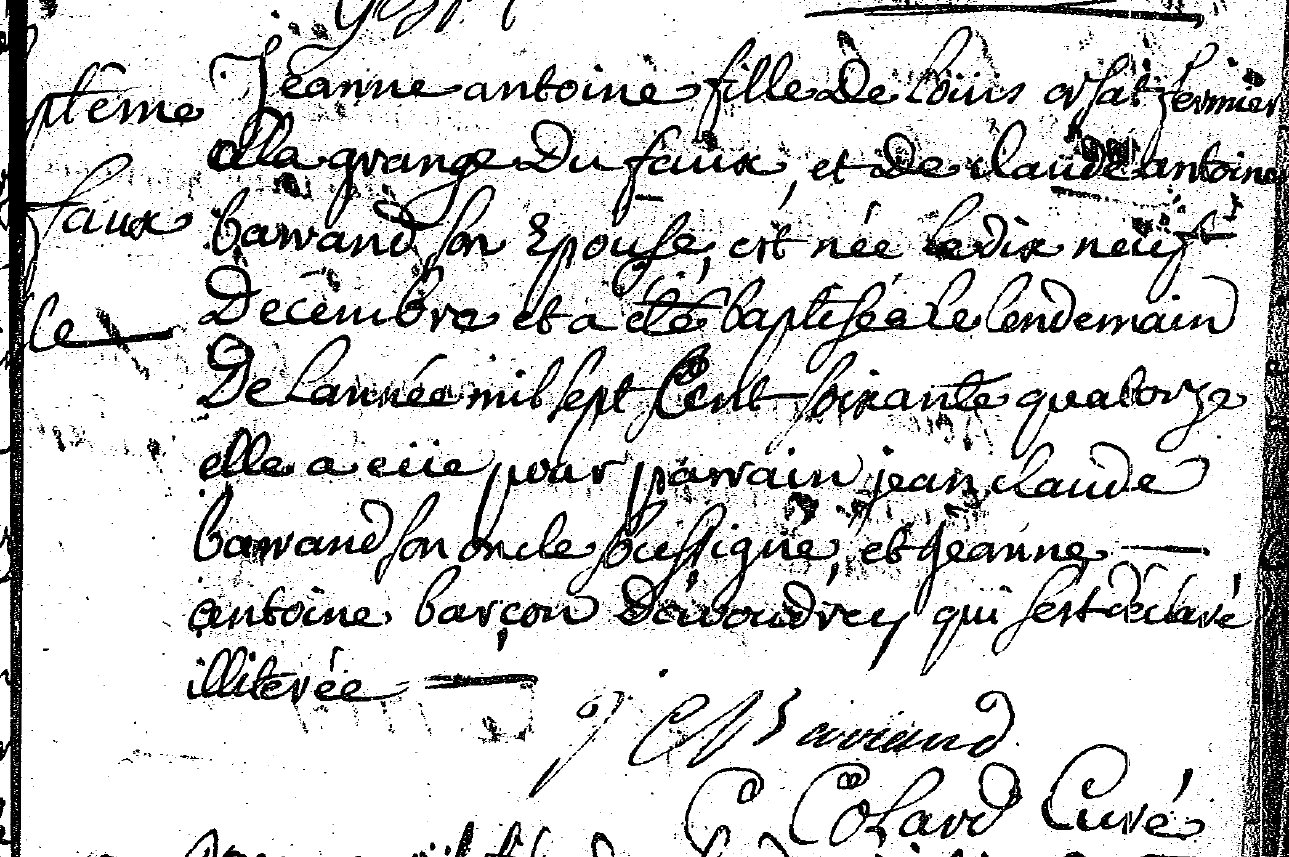 ptême
faux
le
Jeanne antoine fille De loüis fermier
alla grange Du faux, et De claude antoine
barrand son Epouse, est née le dix neuf
Decembre et a été baptisée le lendemain
De lannée mil sept Cent soixante quatorze
elle a eüe pour parrain jean claude
barrand son oncle soussigné, et jeanne
antoine barçon qui sest déclaré
illiterée
j C Barrand
C Colard Curé